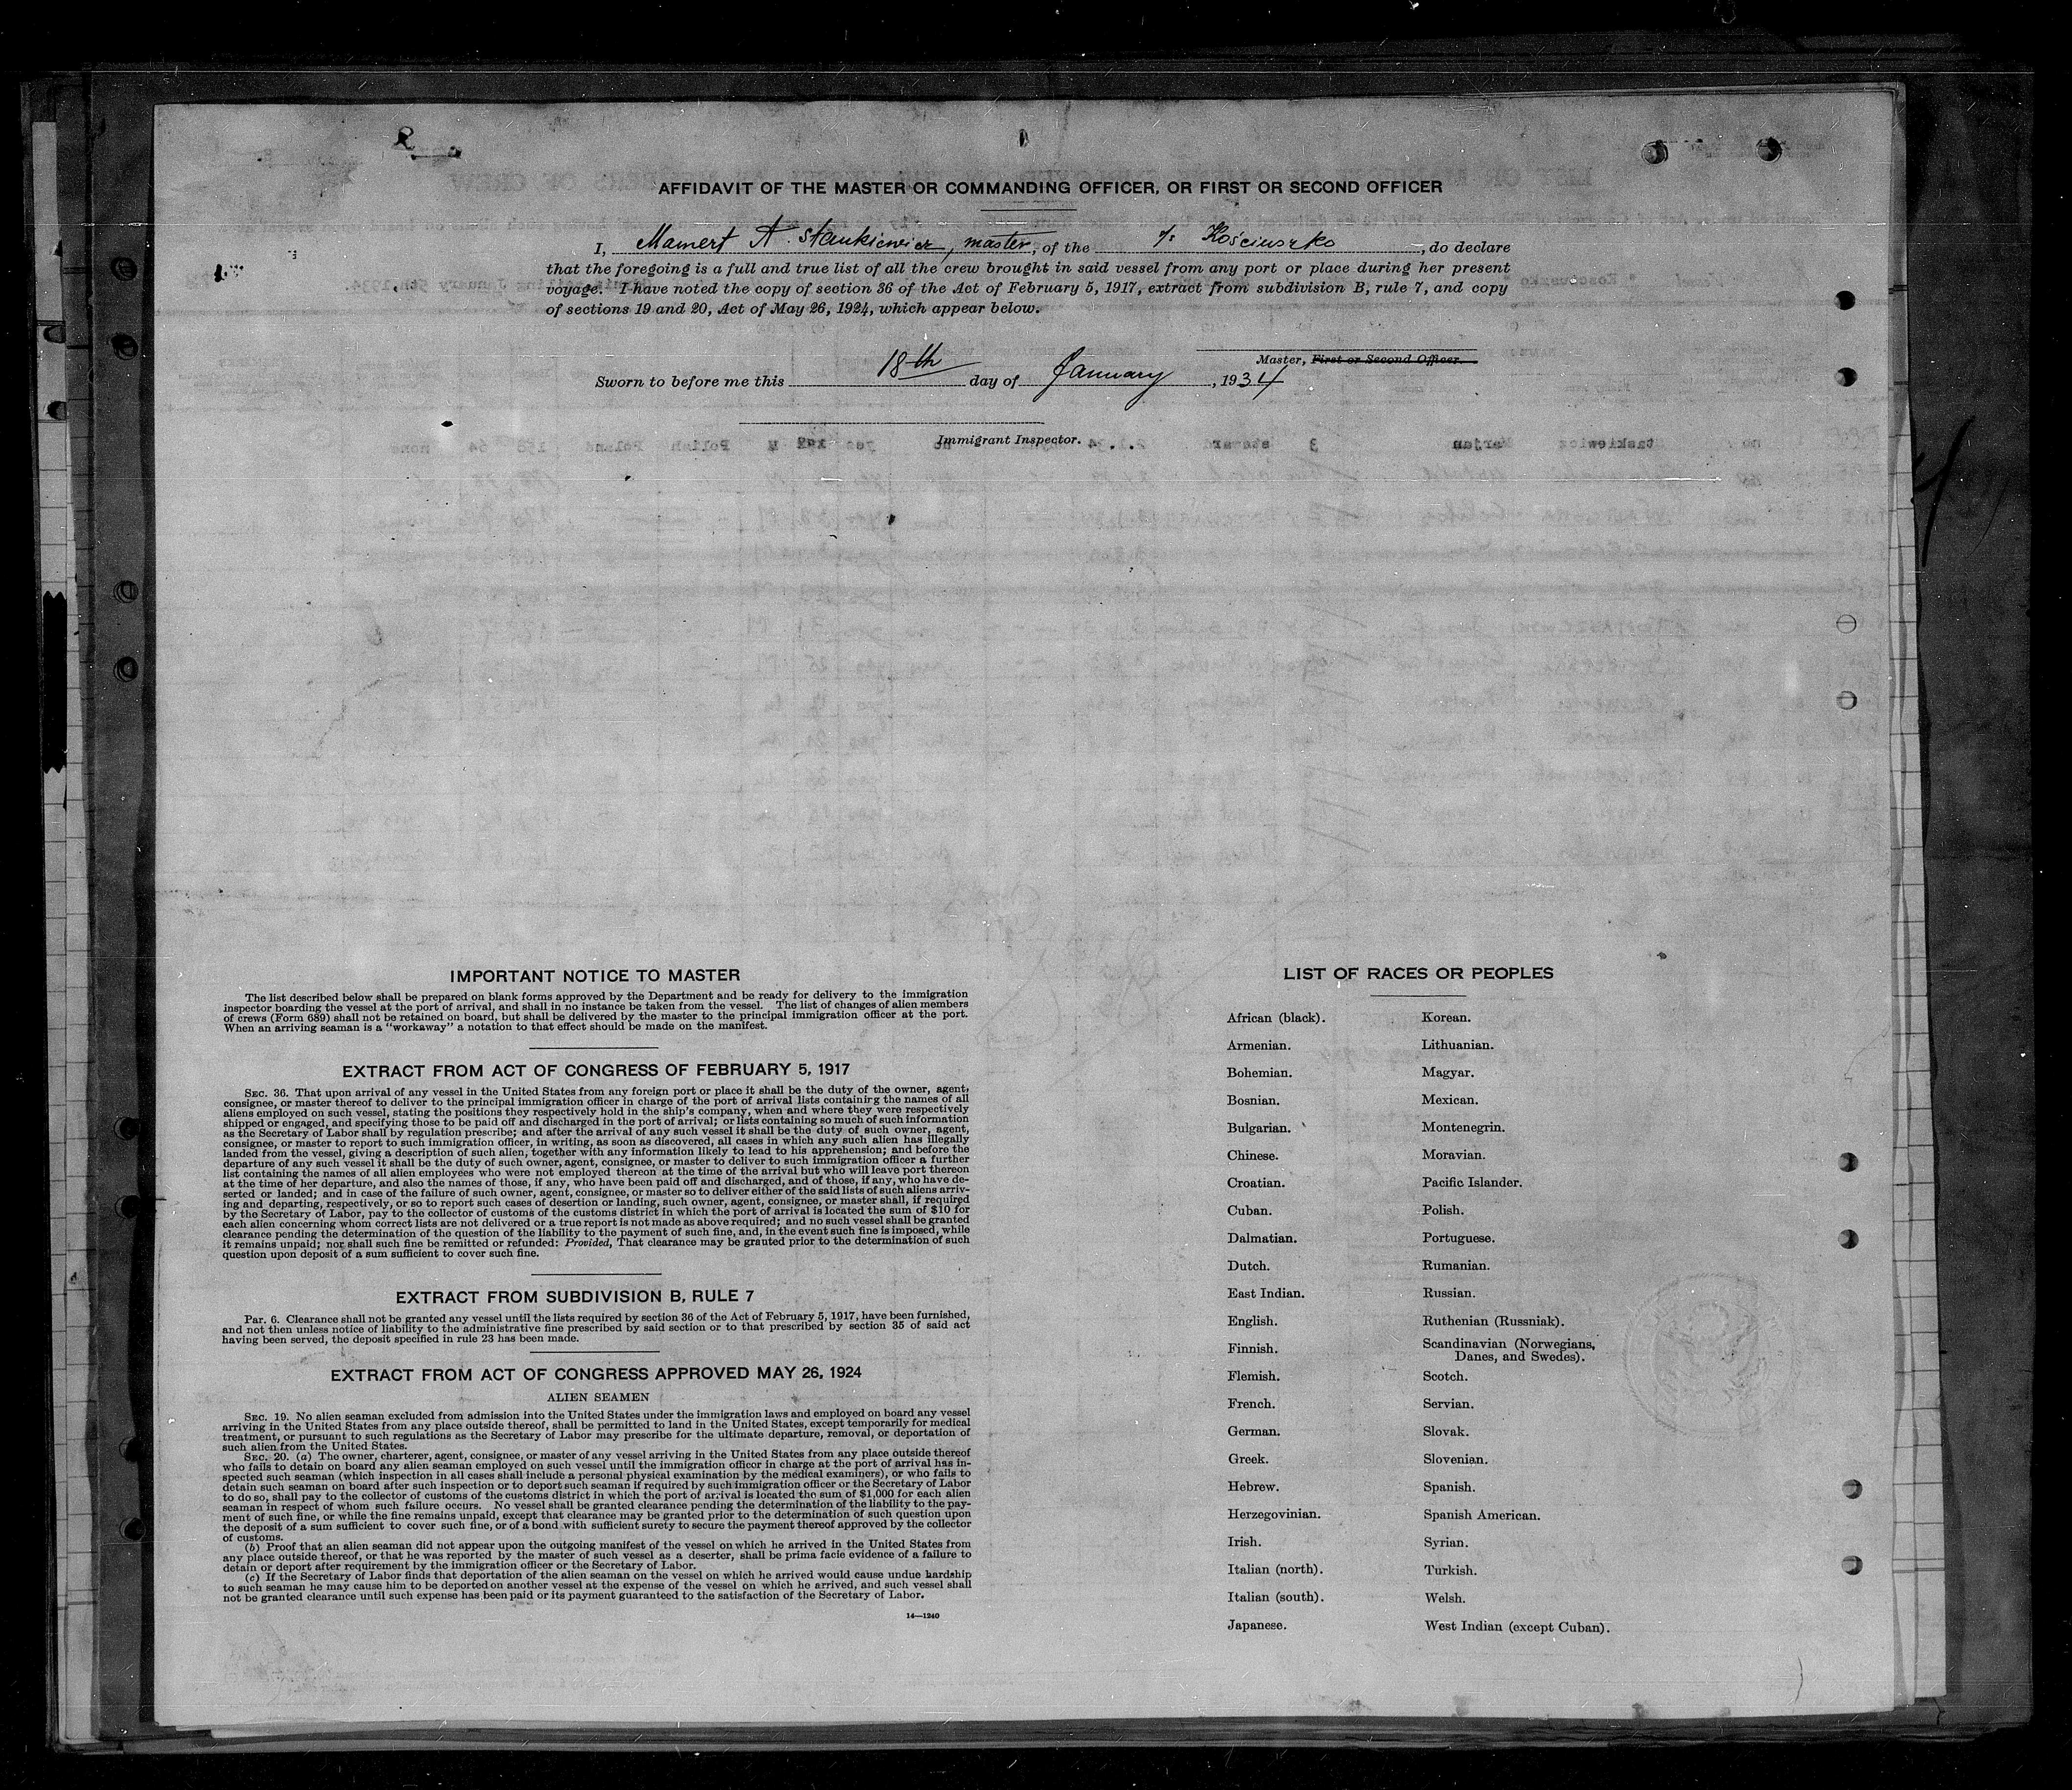 AFFIDAVIT OF THE MASTER OR COMMANDING OFFICER, OR FIRST OR SECOND OFFICER
I, Mamert A. Stankiewicz, master, of the s/s Kościuszko, do declare
that the foregoing is a full and true list of all the crew brought in said vessel from any port or place during her present
voyage. I have noted the copy of section 36 of the Act of February 5, 1917, extract from subdivision B, rule 7, and copy
of sections 19 and 20, Act of May 26, 1924, which appear below.
Master, First or Second Officer.
Sworn to before me this 18th day of January, 1934
Immigrant Inspector.
IMPORTANT NOTICE TO MASTER
The list described below shall be prepared on blank forms approved by the Department and be ready for delivery to the immigration
inspector boarding the vessel at the port of arrival, and shall in no instance be taken from the vessel. The list of changes of alien members
of crews (Form 689) shall not be retained on board, but shall be delivered by the master to the principal immigration officer at the port.
When an arriving seaman is a "workaway" a notation to that effect should be made on the manifest.
EXTRACT FROM ACT OF CONGRESS OF FEBRUARY 5, 1917
SEC. 36. That upon arrival of any vessel in the United States from any foreign port or place it shall be the duty of the owner, agent,
consignee, or master thereof to deliver to the principal immigration officer in charge of the port of arrival lists containing the names of all
aliens employed on such vessel, stating the positions they respectively hold in the ship's company, when and where they were respectively
shipped or engaged, and specifying those to be paid off and discharged in the port of arrival; or lists containing so much of such information
as the Secretary of Labor shall by regulation prescribe; and after the arrival of any such vessel it shall be the duty of such owner, agent,
consignee, or master to report to such immigration officer, in writing, as soon as discovered, all cases in which any such alien has illegally
landed from the vessel, giving a description of such alien, together with any information likely to lead to his apprehension; and before the
departure of any such vessel it shall be the duty of such owner, agent, consignee, or master to deliver to such immigration officer a further
list containing the names of all alien employees who were not employed thereon at the time of the arrival but who will leave port thereon
at the time of her departure, and also the names of those, if any, who have been paid off and discharged, and of those, if any, who have de-
serted or landed; and in case of the failure of such owner, agent, consignee, or master so to deliver either of the said lists of such aliens arriv-
ing and departing, respectively, or so to report such cases of desertion or landing, such owner, agent, consignee, or master shall, if required
by the Secretary of Labor, pay to the collector of customs of the customs district in which the port of arrival is located the sum of $10 for
each alien concerning whom correct lists are not delivered or a true report is not made as above required; and no such vessel shall be granted
clearance pending the determination of the question of the liability to the payment of such fine, and, in the event such fine is imposed, while
it remains unpaid; nor shall such fine be remitted or refunded: Provided, That clearance may be granted prior to the determination of such
question upon deposit of a sum sufficient to cover such fine.
EXTRACT FROM SUBDIVISION B, RULE 7
Par. 6. Clearance shall not be granted any vessel until the lists required by section 36 of the Act of February 5, 1917, have been furnished,
and not then unless notice of liability to the administrative fine prescribed by said section or to that prescribed by section 35 of said act
having been served, the deposit specified in rule 23 has been made.
EXTRACT FROM ACT OF CONGRESS APPROVED MAY 26, 1924
ALIEN SEAMEN
SEC. 19. No alien seaman excluded from admission into the United States under the immigration laws and employed on board any vessel
arriving in the United States from any place outside thereof, shall be permitted to land in the United States, except temporarily for medical
treatment, or pursuant to such regulations as the Secretary of Labor may prescribe for the ultimate departure, removal, or deportation of
such alien from the United States.
SEC. 20. (a) The owner, charterer, agent, consignee, or master of any vessel arriving in the United States from any place outside thereof
who fails to detain on board any alien seaman employed on such vessel until the immigration officer in charge at the port of arrival has in-
spected such seaman (which inspection in all cases shall include a personal physical examination by the medical examiners), or who fails to
detain such seaman on board after such inspection or to deport such seaman if required by such immigration officer or the Secretary of Labor
to do so, shall pay to the collector of customs of the customs district in which the port of arrival is located the sum of $1,000 for each alien
seaman in respect of whom such failure occurs. No vessel shall be granted clearance pending the determination of the liability to the pay-
ment of such fine, or while the fine remains unpaid, except that clearance may be granted prior to the determination of such question upon
the deposit of a sum sufficient to cover such fine, or of a bond with sufficient surety to secure the payment thereof approved by the collector
of customs.
(b) Proof that an alien seaman did not appear upon the outgoing manifest of the vessel on which he arrived in the United States from
any place outside thereof, or that he was reported by the master of such vessel as a deserter, shall be prima facie evidence of a failure to
detain or deport after requirement by the immigration officer or the Secretary of Labor.
(c) If the Secretary of Labor finds that deportation of the alien seaman on the vessel on which he arrived would cause undue hardship
to such seaman he may cause him to be deported on another vessel at the expense of the vessel on which he arrived, and such vessel shall
not be granted clearance until such expense has been paid or its payment guaranteed to the satisfaction of the Secretary of Labor.
14—1240
LIST OF RACES OR PEOPLES
African (black).
Armenian.
Bohemian.
Bosnian.
Bulgarian.
Chinese.
Croatian.
Cuban.
Dalmatian.
Dutch.
East Indian.
English.
Finnish.
Flemish.
French.
German.
Greek.
Hebrew.
Herzegovinian.
Irish.
Italian (north).
Italian (south).
Japanese.
Korean.
Lithuanian.
Magyar.
Mexican.
Montenegrin.
Moravian.
Pacific Islander.
Polish.
Portuguese.
Rumanian.
Russian.
Ruthenian (Russniak).
Scandinavian (Norwegians,
Danes, and Swedes).
Scotch.
Servian.
Slovak.
Slovenian.
Spanish.
Spanish American.
Syrian.
Turkish.
Welsh.
West Indian (except Cuban).